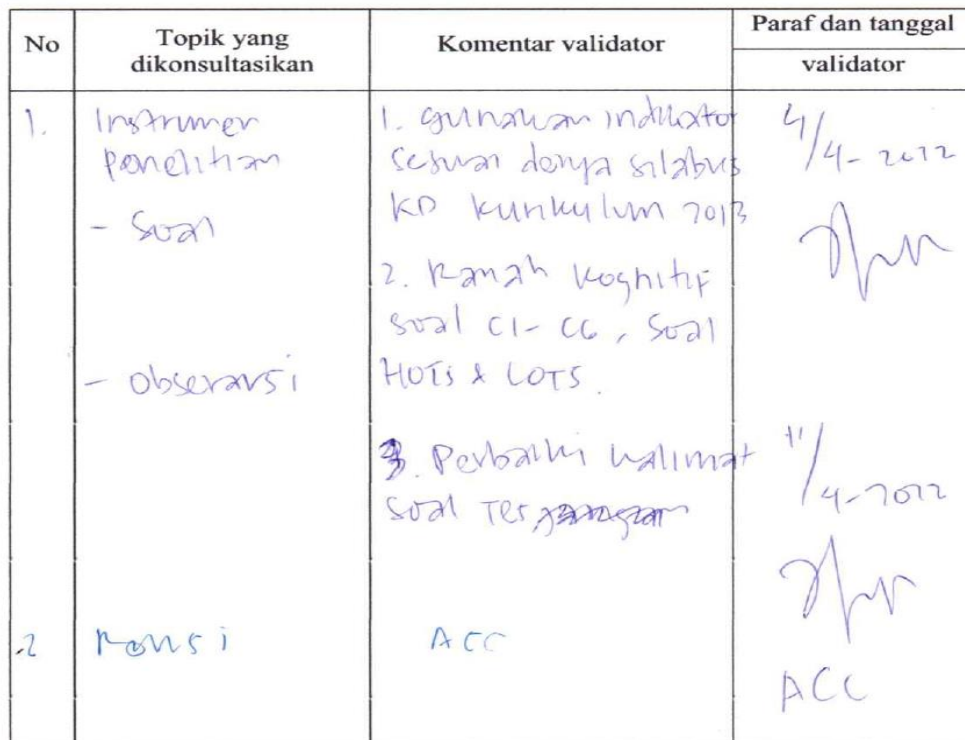 No
Topik yang
dikonsultasikan
Komentar validator
Paraf dan tanggal
validator
1. Instrumen
penelitian
- Soal
- Observarsi
1. gunakan indikator
sesuai denga silabus
KD kurikulum 2013
2. Ranah kognitif
soal C1-C6, soal
HOTs & LOTS.
3. Perbaiki kalimat
soal Tes
4/4-2022
11/4-2022
2 ACC
ACC